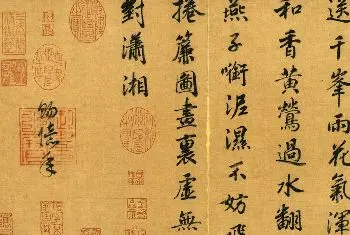 送千峯雨花氣渾
和香黃鶯過水翻
燕子啣泥濕不妨飛
捲簾圖畫裏虛無
對瀟湘
賜億年